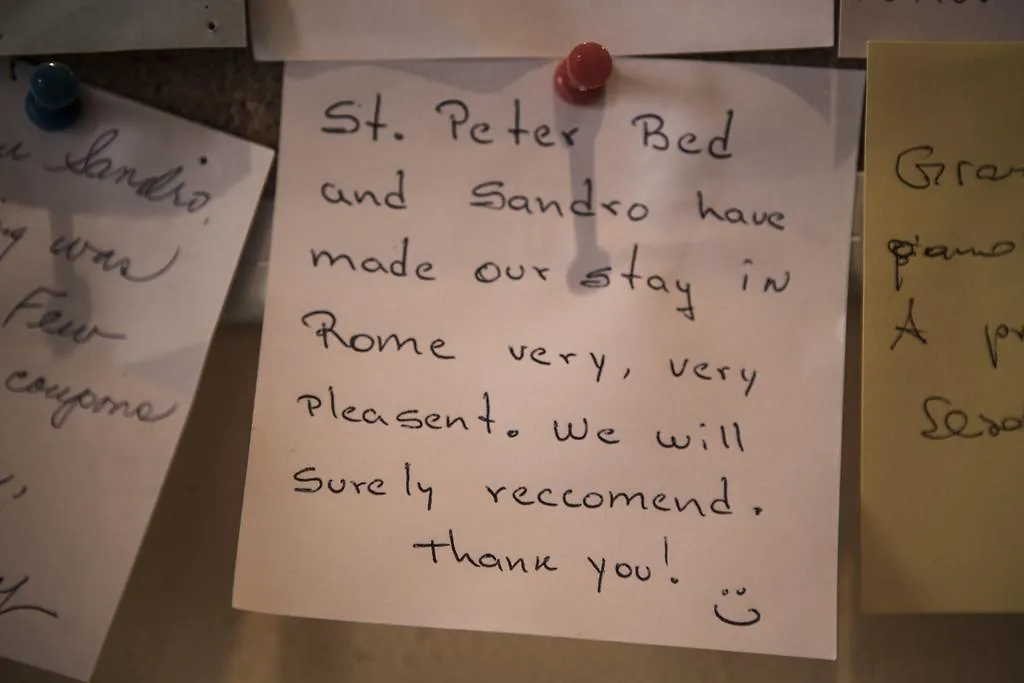 Sandro,
was
Few
coupons
St. Peter Bed
and Sandro have
made our stay in
Rome very, very
pleasent. We will
surely reccomend.
thank you!
piano
A